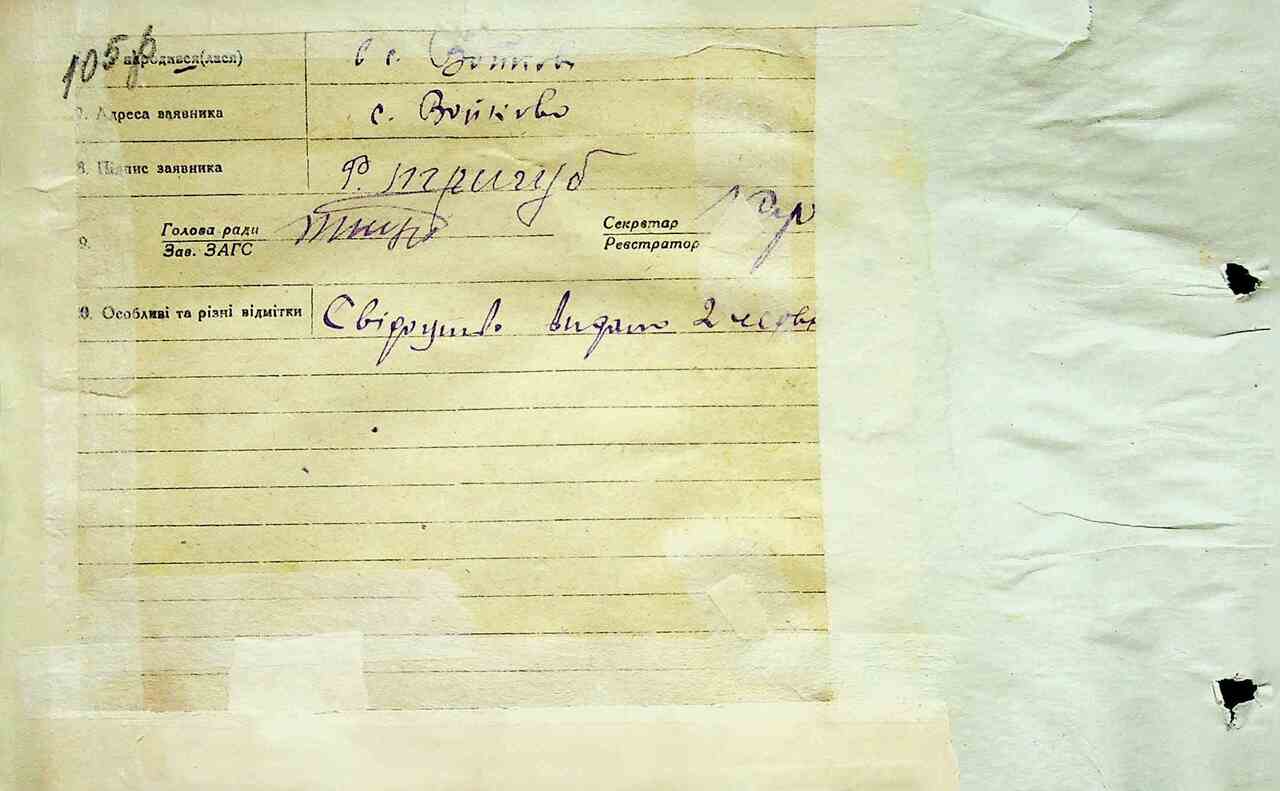 105
народився(лася) в с. Войково
7. Адреса заявника с. Войково
8. Підпис заявника Р. Тригуб
9. Голова ради Секретар
Зав. ЗАГС Реєстратор
10. Особливі та різні відмітки Свідоцтво видано 2 червн